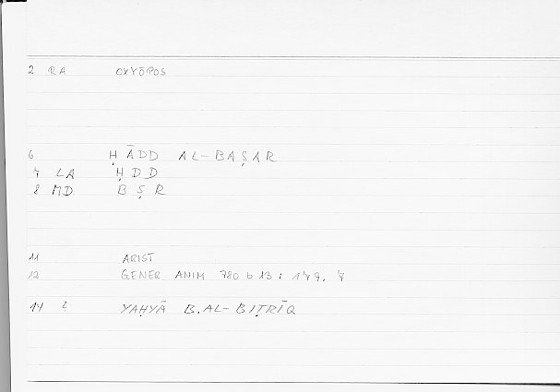 2 RA OXYŌPOS
6 ḤĀDD AL-BAṢAR
7 LA ḤDD
8 MD BṢR
11 ARIST
12 GENER ANIM 780 b 13 : 179, 7
14 2 YAḤYĀ B. AL-BIṬRĪQ